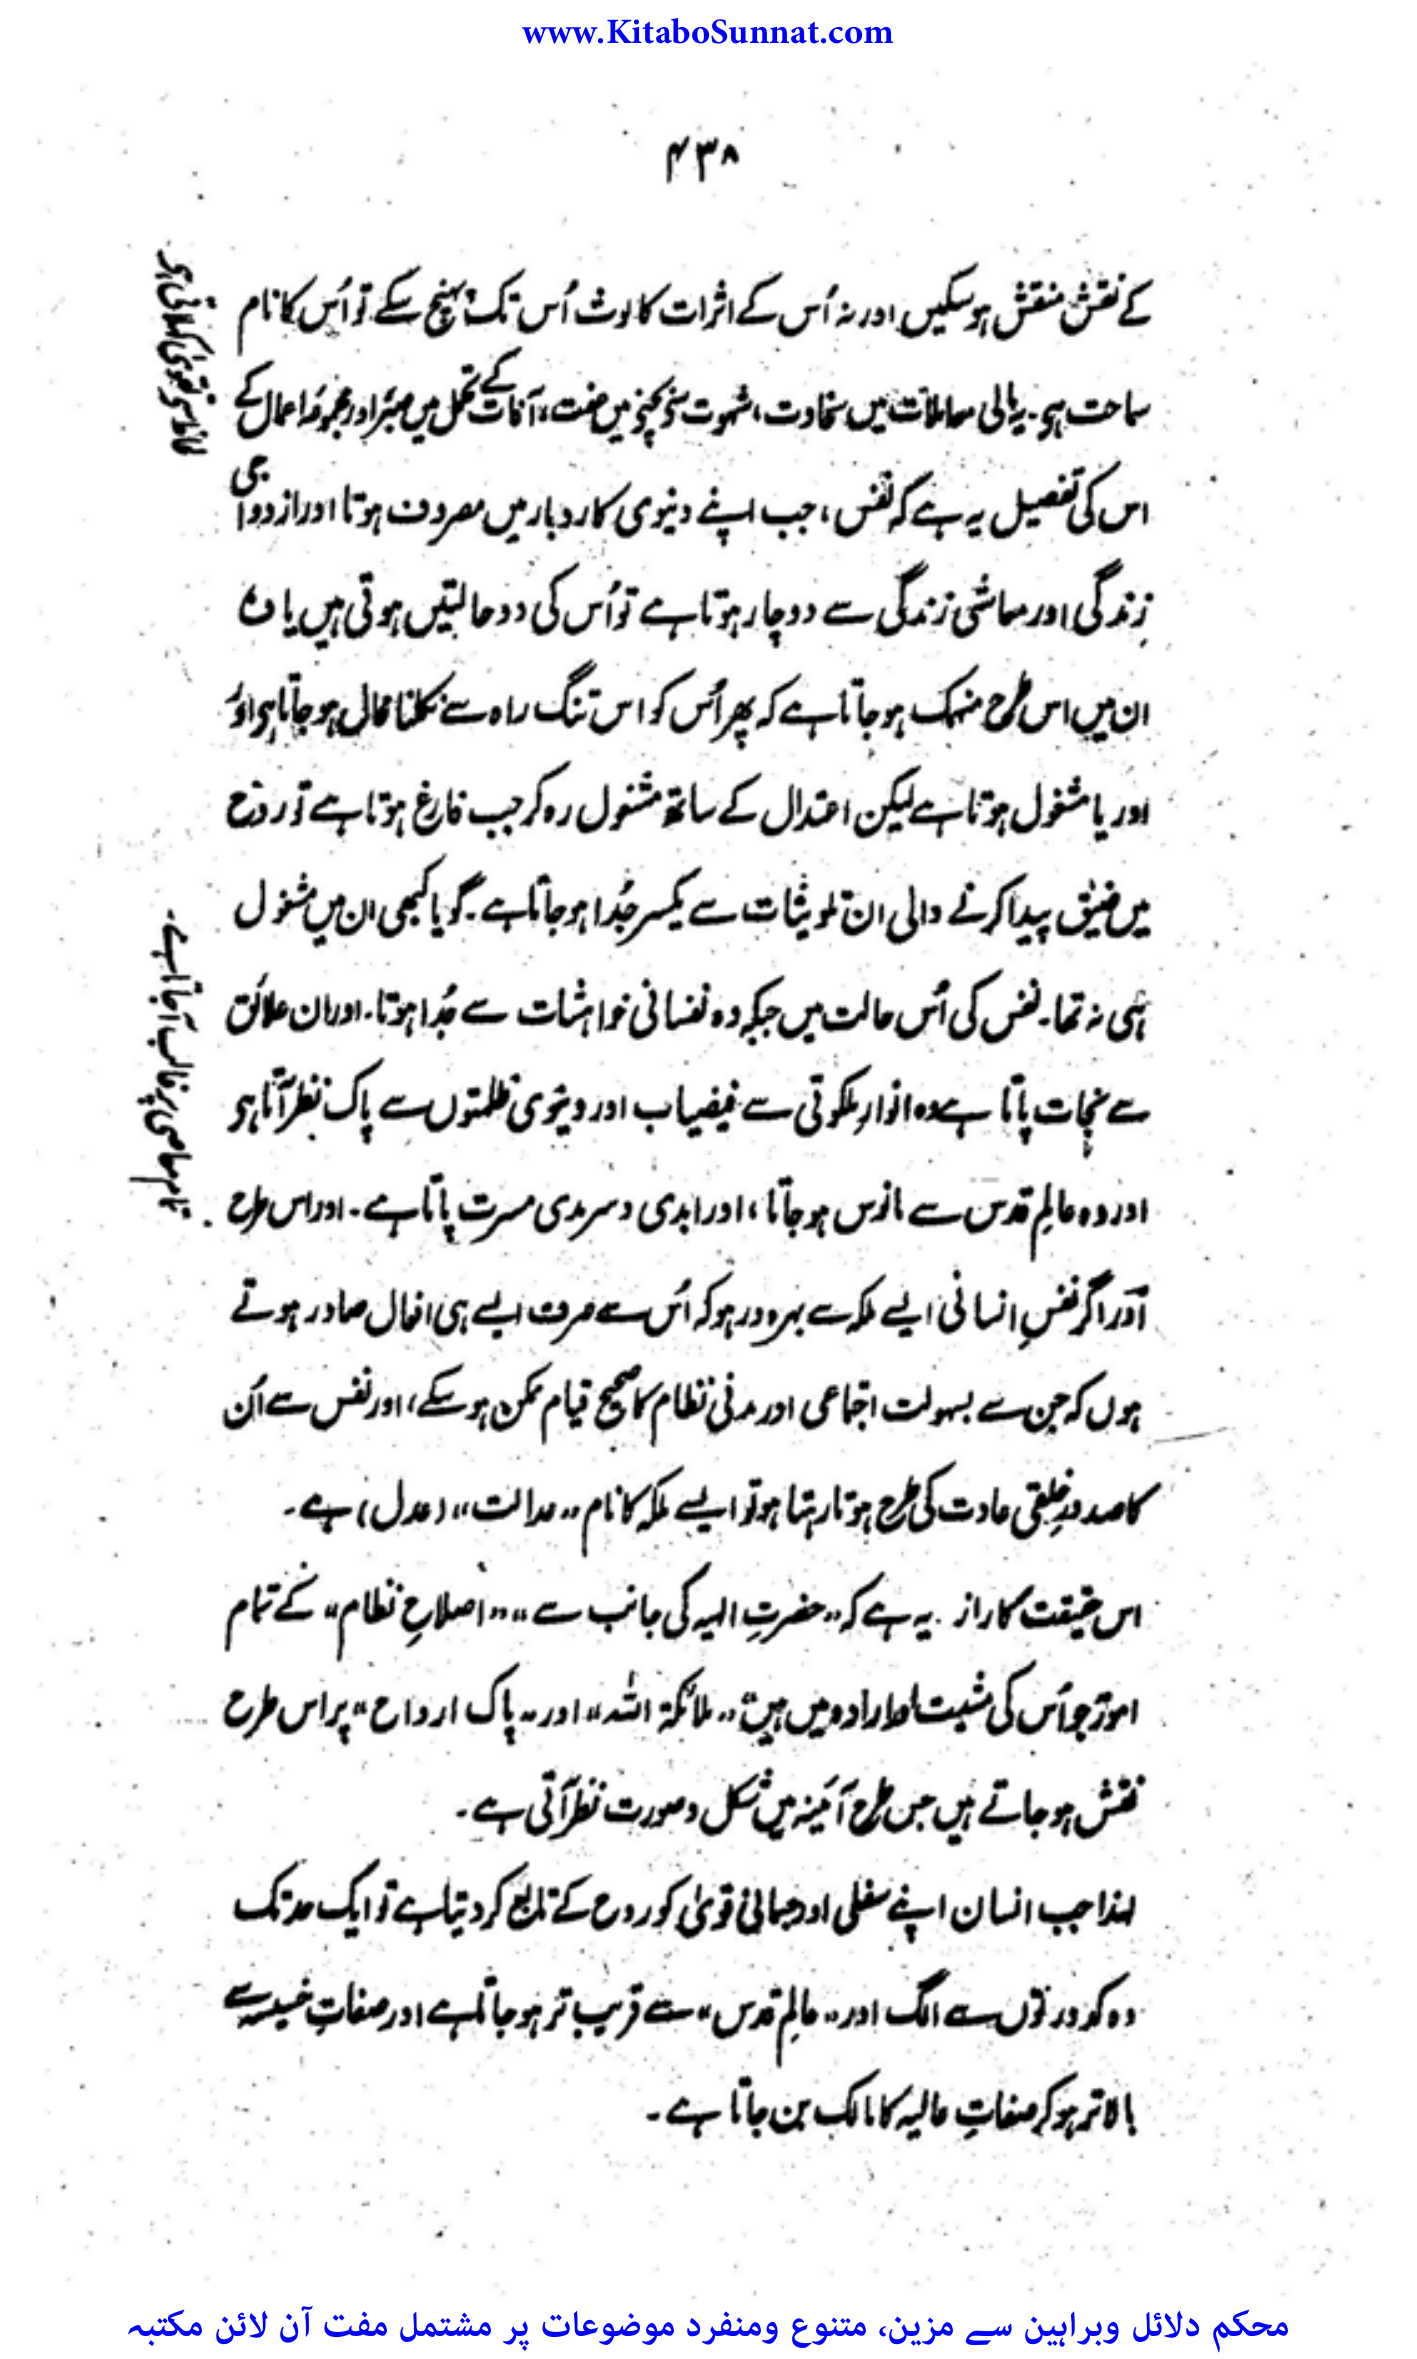 www.KitaboSunnat.com
۴۳۸
کے نقش منقش ہو سکیں اور نہ اُس کے اثرات کا لوث اُس تک پہنچ سکے تو اُس کا نام
سماحت ہی۔ یہ مالی معاملات میں سخاوت، شہوت سے بچنے میں عفت، آفات کے تحمل میں صبر اور مجموعۂ اعمال کے
لحاظ سے تقویٰ کہلاتی ہی
اس کی تفصیل یہ ہے کہ نفس، جب اپنے دنیوی کاروبار میں مصروف ہوتا اور ازدواجی
زندگی اور معاشی زندگی سے دوچار ہوتا ہے تو اُس کی دو حالتیں ہوتی ہیں یا وہ
ان میں اس طرح منہمک ہو جاتا ہے کہ پھر اُس کو اس تنگ راہ سے نکلنا محال ہو جاتا ہی اور
اور یا مشغول ہوتا ہے لیکن اعتدال کے ساتھ مشغول رہ کر جب فارغ ہوتا ہے تو روح
میں ضیق پیدا کرنے والی ان تلویثات سے یکسر جُدا ہو جاتا ہے۔ گویا کبھی ان میں مشغول
ہی نہ تھا۔ نفس کی اُس حالت میں جبکہ وہ نفسانی خواہشات سے جُدا ہوتا۔ اور ان علائق
سے نجات پاتا ہے وہ انوارِ ملکوتی سے فیضیاب اور دنیوی ظلمتوں سے پاک نظر آتا ہی
اور وہ عالمِ قدس سے مانوس ہو جاتا، اور ابدی و سرمدی مسرت پاتا ہے۔ اور اس طرح
تمام معاصی پر غالب آ جاتا ہے۔
اور اگر نفسِ انسانی ایسے ملکہ سے بہرہ ور ہو کہ اُس سے صرف ایسے ہی افعال صادر ہوتے
ہوں کہ جن سے بسہولت اجتماعی اور مدنی نظام کا صحیح قیام ممکن ہو سکے، اور نفس سے اُن
کا صدور خِلقی عادت کی طرح ہوتا رہتا ہو تو ایسے ملکہ کا نام "عدالت" (عدل) ہے۔
اس حقیقت کا راز یہ ہے کہ "حضرتِ الٰہیہ کی جانب سے" "اصلاحِ نظام" کے تمام
امور جو اُس کی مشیت اور ارادہ میں ہیں "ملائکۃ اللہ" اور "پاک ارواح" پر اس طرح
نقش ہو جاتے ہیں جس طرح آئینہ میں شکل و صورت نظر آتی ہے۔
لہذا جب انسان اپنے سفلی اور جسمانی قویٰ کو روح کے تابع کر دیتا ہے تو ایک حد تک
وہ کدورتوں سے الگ اور "عالمِ قدس" سے قریب تر ہو جاتا ہے اور صفاتِ خسیسہ سے
بالاتر ہو کر صفاتِ عالیہ کا مالک بن جاتا ہے۔
محکم دلائل وبراہین سے مزین، متنوع ومنفرد موضوعات پر مشتمل مفت آن لائن مکتبہ